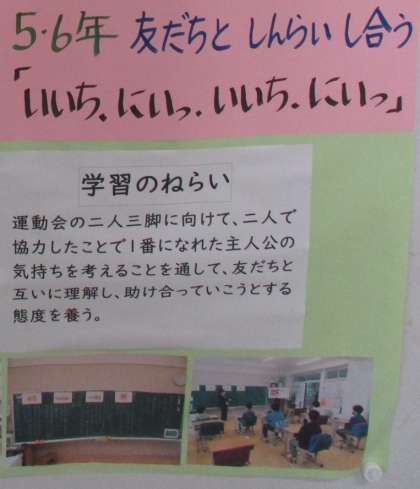 5・6年 友だちと しんらいし合う
「いいち、にいっ、いいち、にいっ」
学習のねらい
運動会の二人三脚に向けて、二人で
協力したことで1番になれた主人公の
気持ちを考えることを通して、友だちと
互いに理解し、助け合っていこうとする
態度を養う。